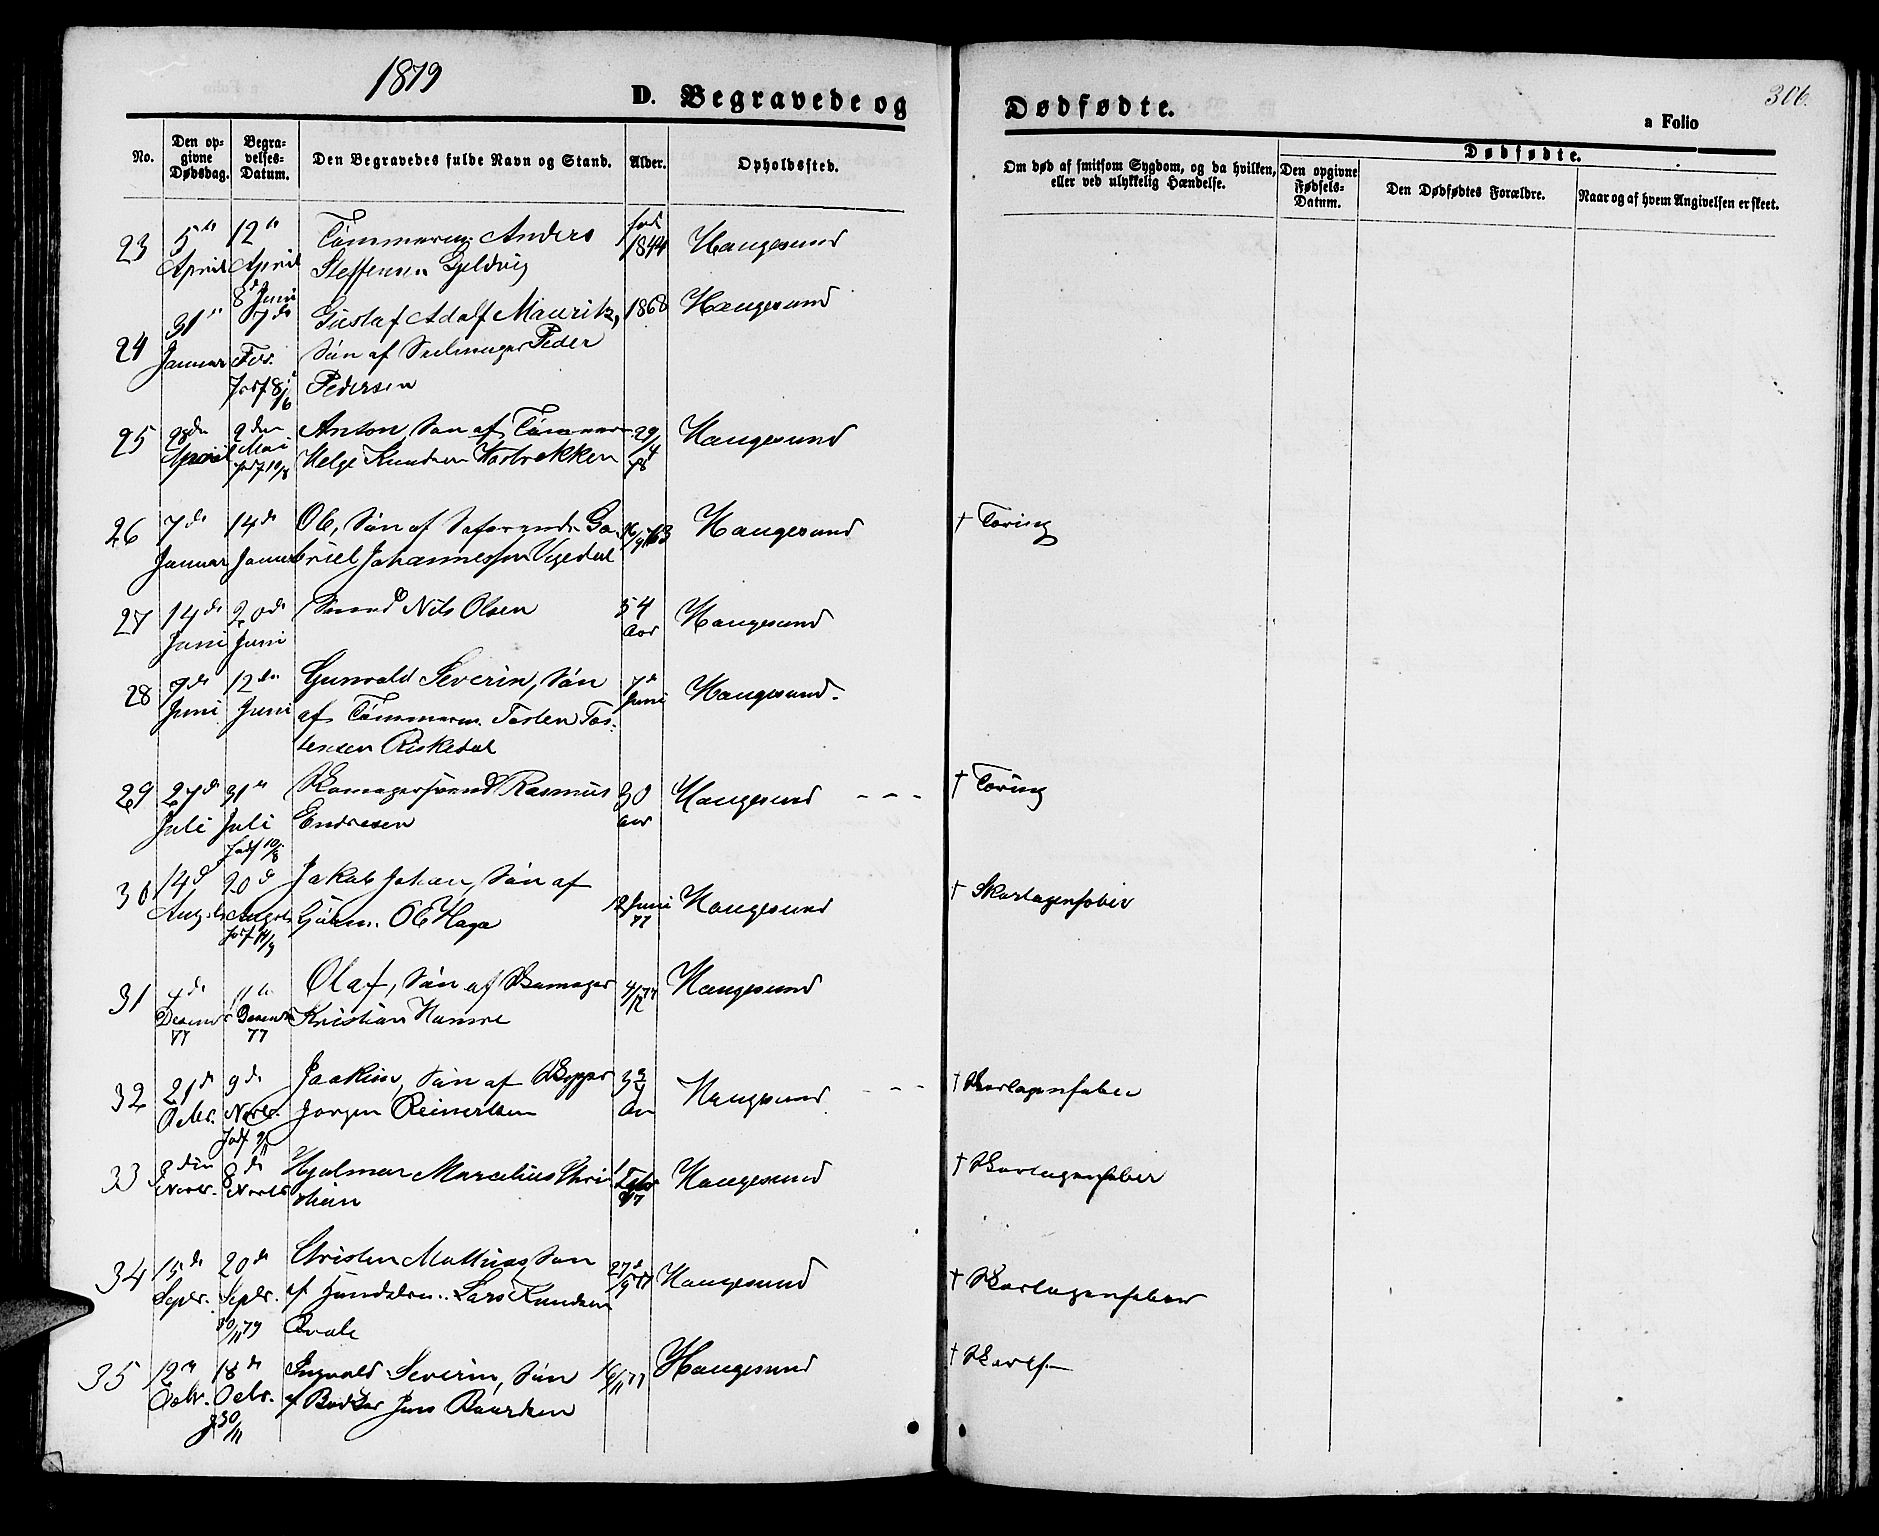 1879
D. Begravede og
Dødfødte.
306.
a Folio
No.
Den opgivne Dødsdag.
Begravelses-Datum.
Den Begravedes fulde Navn og Stand.
Alder.
Opholdssted.
Om død af smitsom Sygdom, og da hvilken, eller ved ulykkelig Hændelse.
Dødfødte.
Den opgivne Fødsels-Datum.
Den Dødfødtes Forældre.
Naar og af hvem Angivelsen er skeet.
23 5te 12te Tømmerm. Anders fød
April April Steffensen 1844 Haugesund
8d Juni
24 31te 7de Gustaf Adolf Mauritz, 1868 Haugesund
Januar Søn af Peder
Jordf 8/6 Pedersen
25 28de 9den Anton, Søn af Tømmerm. 29/4 78 Haugesund
April Mai Helge Knudsen
26 7de 14de Ole, Søn af Søfarende Ga- 63 Haugesund † Tæring
Januar Januar briel Johannessen
27 14de 20de Smed Nils Olsen 54 Haugesund
Juni Juni Aar
28 9de 12te Gunvald Severin, Søn 7de Haugesund.
Juni Juni af Tømmerm. Tosten Tos- Juni
tensen Riskedal
29 27de 31te Skomagersvend Rasmus 30 Haugesund - - - † Tæring
Juli Juli Endresen Aar
Jordf 10/8
30 14d 20de Jakob Johan, Søn af 12 Juni 77 Haugesund † Skarlagensfeber
August August Ole Haga
31 4de 11te Olaf, Søn af Skomager 4/12 77 Haugesund
Decemb Decemb Kristian Hamre
77 77
32 21de 9de Joakim, Søn af Skipper 3 3/4 Haugesund - - - † Skarlagensfeber
Octbr. Novbr. Jørgen Reinertsen Aar
33 3den 8de Hjalmar Marcelius Chri- Febr 77 Haugesund † Skarlagensfeber
Novbr. Novbr stian
34 15de 20de Christen Mathias, Søn 27de/9 77 Haugesund † Skarlagensfeber
Septbr. Septbr. af Handelsm. Lars Knudsen
30/11 79 Qvale
35 12te 18de Ingvald Severin, Søn 16/11 77 Haugesund † Skarlf.
Octbr. Octbr. af Bødker Jens Baardsen
J 30/11